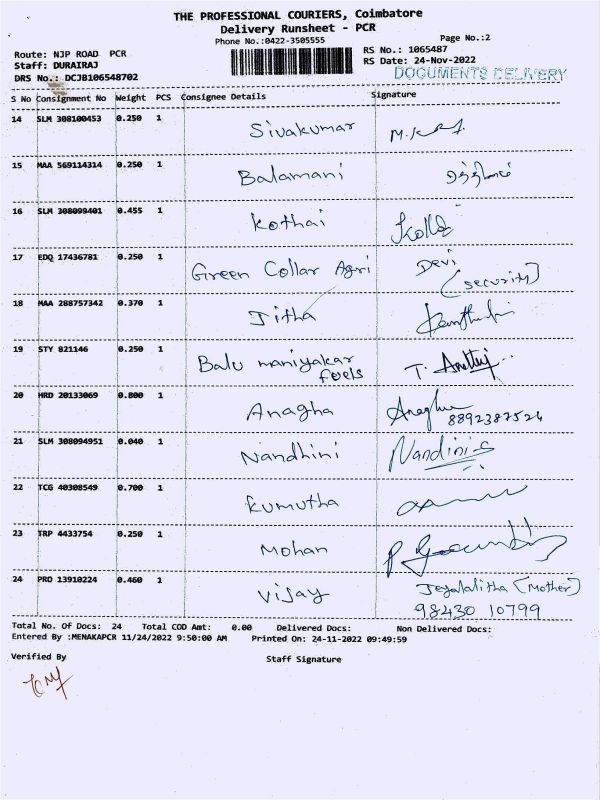 THE PROFESSIONAL COURIERS, Coimbatore
Delivery Runsheet - PCR
Phone No.:0422-3505555
Page No.:2
Route: NJP ROAD PCR
RS No.: 1065487
Staff: DURAIRAJ
RS Date: 24-Nov-2022
DRS No.: DCJB106548702
DOCUMENTS DELIVERY
S No Consignment No Weight PCS Consignee Details Signature
14 SLM 308100453 0.250 1 Sivakumar
15 MAA 569114314 0.250 1 Balamani
16 SLM 308099401 0.455 1 Kothai
17 EDQ 17436781 0.250 1 Green Collar Agri Devi
(security)
18 MAA 288757342 0.370 1 Jitha
19 STY 821146 0.250 1 Balu maniyakar
fuels
20 HRD 20133069 0.800 1 Anagha Anagha
8892387524
21 SLM 308094951 0.040 1 Nandhini Nandini-S
22 TCG 40308549 0.700 1 Kumutha
23 TRP 4433754 0.250 1 Mohan
24 PRO 13910224 0.460 1 Vijay Jeyalalitha (Mother)
98430 10799
Total No. Of Docs: 24 Total COD Amt: 0.00 Delivered Docs: Non Delivered Docs:
Entered By :MENAKAPCR 11/24/2022 9:50:00 AM Printed On: 24-11-2022 09:49:59
Verified By Staff Signature